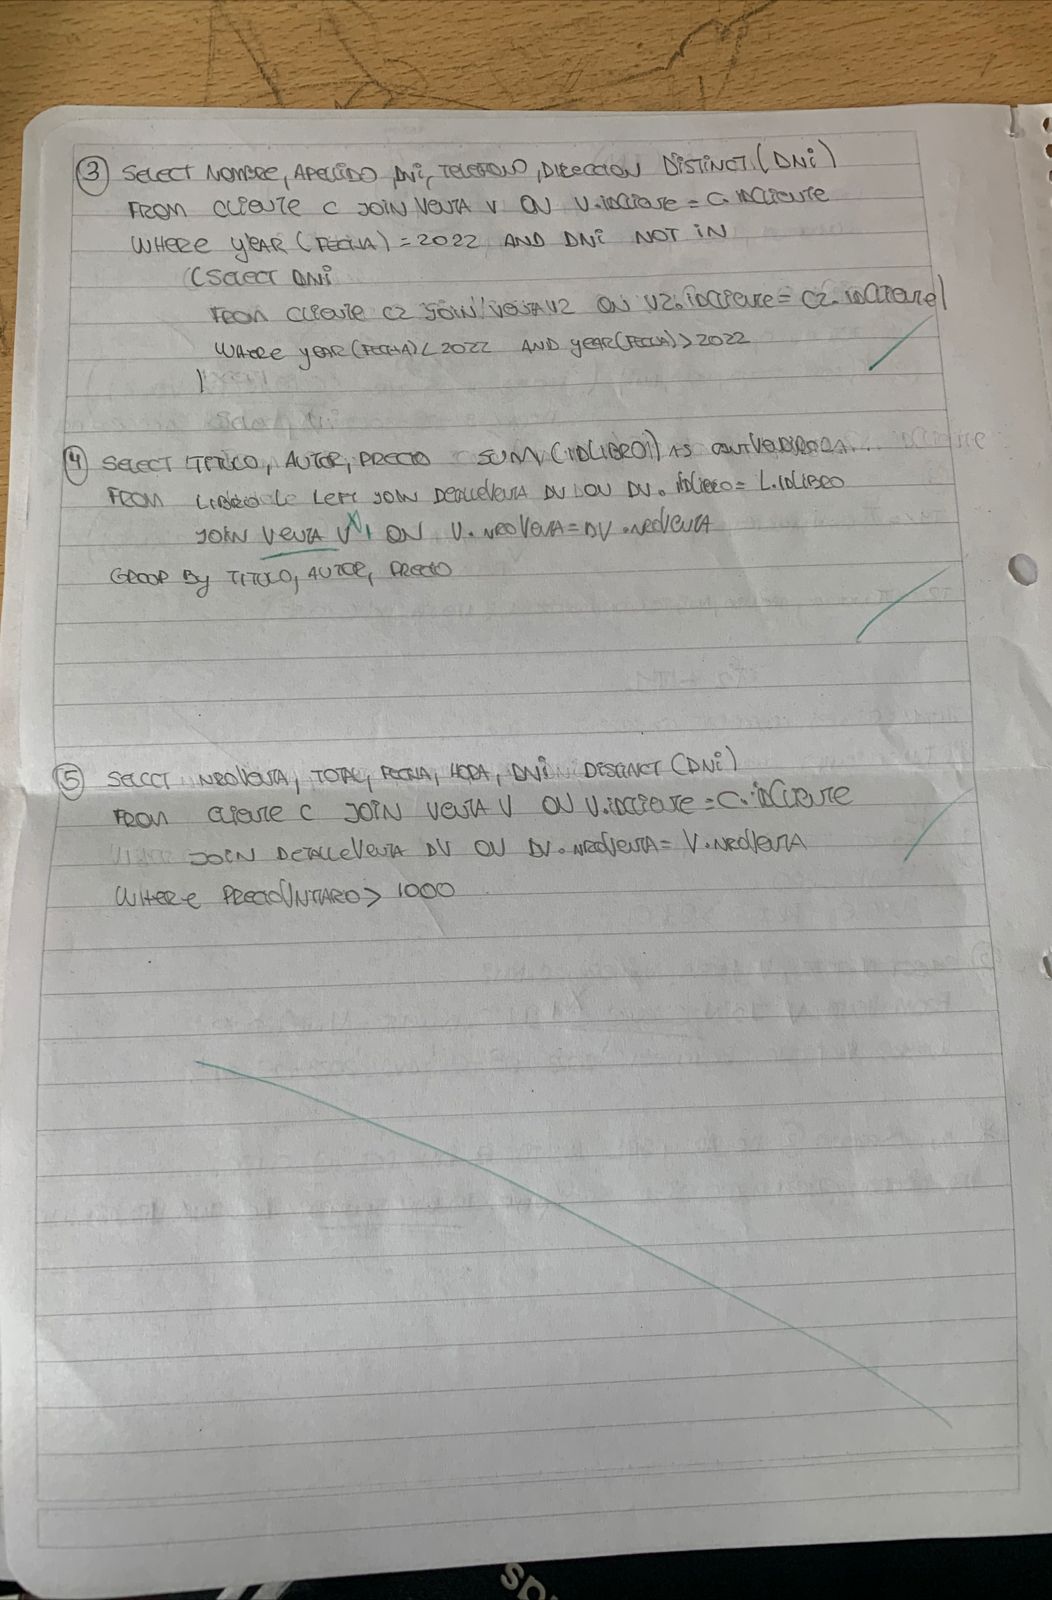 ③ SELECT NOMBRE, APELLIDO, DNi, TELEFONO, DIRECCION DISTINCT (DNi)
FROM CLIENTE C JOIN VENTA V ON V.IDCLIENTE = C.IDCLIENTE
WHERE YEAR (FECHA) = 2022 AND DNi NOT IN
(SELECT DNi
FROM CLIENTE C2 JOIN VENTA V2 ON V2.IDCLIENTE = C2.IDCLIENTE
WHERE YEAR(FECHA) < 2022 AND YEAR(FECHA) > 2022
)
④ SELECT TITULO, AUTOR, PRECIO SUM (IDLIBRO) AS
FROM LIBRO L LEFT JOIN DETALLEVENTA DV ON DV.IDLIBRO = L.IDLIBRO
JOIN VENTA V ON V.NROVENTA = DV.NROVENTA
GROOP BY TITULO, AUTOR, PRECIO
⑤ SELECT NROVENTA, TOTAL, FECHA, HORA, DNi DISTINCT (DNi)
FROM CLIENTE C JOIN VENTA V ON V.IDCLIENTE = C.IDCLIENTE
JOIN DETALLEVENTA DV ON DV.NROVENTA = V.NROVENTA
WHERE PRECIOUNITARIO > 1000